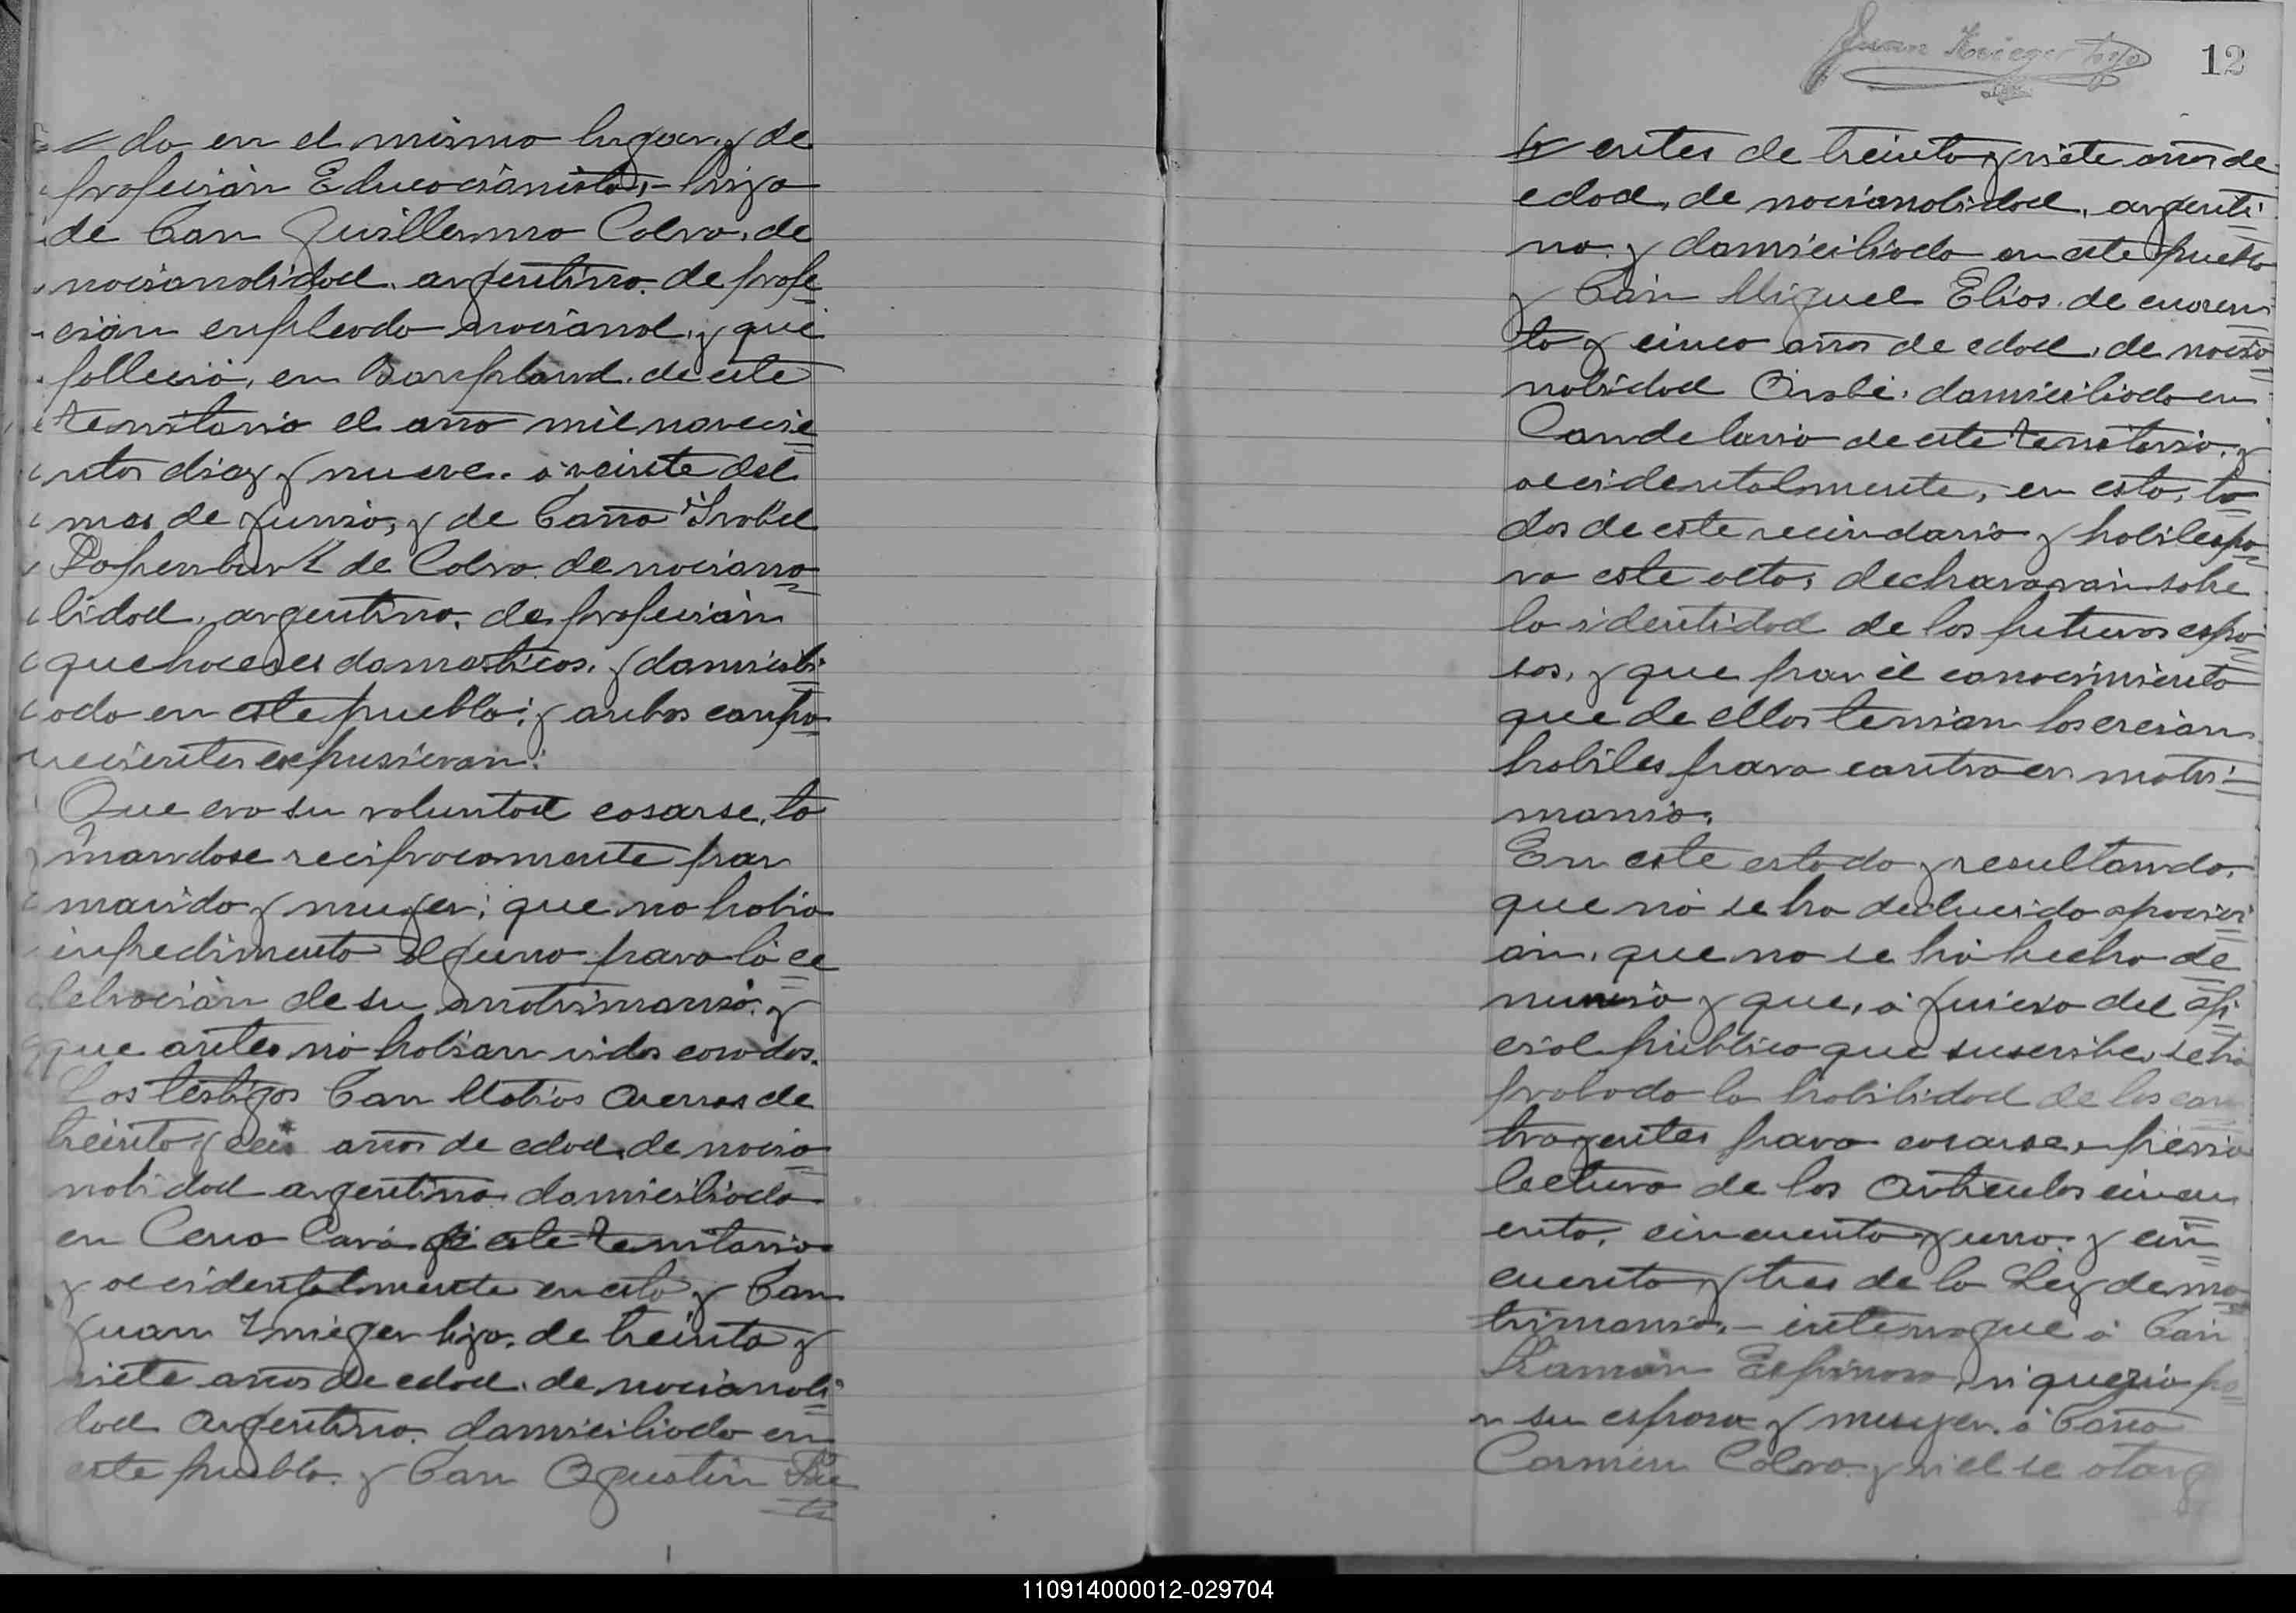 da en el mismo lugar, y de
profesión Educacionista, - hija
de Don Guillermo Calvo, de
nacionalidad argentino, de profe
sión empleado nacional, y que
falleció, en Bompland, de este
territorio el año mil novecie
ntos diez y nueve. á veinte del
mes de Junio, y de Doña Isabel
de Calvo de naciona
lidad, argentina, de profesión
quehaceres domesticos, y domicili
ada en este pueblo; y ambos compa
recientes expusieron:
Que era su voluntad casarse, to
mandose reciprocamente por
marido y muger; que no habia
inpedimento alguno para la ce
lebración de su matrimonio, y
que antes no habian sidos casados.
Los testigos Don Matias de
treinta y seis años de edad, de nacio
nalidad argentino domiciliado
en Cerro Corá de este territorio
y accidentalmente en esta, y Don
Juan Krieger hijo, de treinta y
siete años de edad, de nacionali
dad Argentino, domiciliado en
este pueblo, y Don Agustin
Juan Krieger hijo
12
entes de treinta y siete años de
edad, de nacionalidad, argenti
no, y domiciliado en este pueblo
y Don Miguel Elias, de cuaren
ta y cinco años de edad, de nacio
nalidad Arabe, domiciliado en
Candelaria de este territorio, y
accidentalmente, en esta, to
dos de este vecindario y habiles pa
ra este acto, declararon sobre
la identidad de los futuros espo
sos, y que por el conocimiento
que de ellos tenian los creian
habiles para contraer matri
monio.
En este estado y resultando,
que no se ha deducido oposici
ón, que no se há hecho de
nuncia y que, á juicio del ofi
cial público que suscribe, se há
probado la habilidad de los con
trayentes para casarse, previa
lectura de los Articulos cincu
enta, cincuenta y uno, y cin
cuenta y tres de la Ley de ma
trimonio, - interrogué á Don
Ramón Espinosa, si queria po
r su esposa y muger, á Doña
Carmen Calvo, y si el se otorg
110914000012-029704